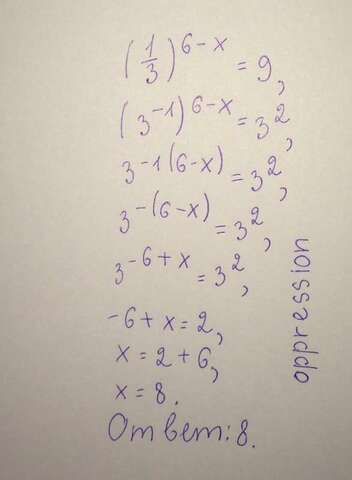 (1/3)^6-x = 9,
(3^-1)^6-x = 3^2,
3^-1(6-x) = 3^2,
3^-(6-x) = 3^2,
3^-6+x = 3^2,
-6+x=2,
x=2+6,
x=8.
Ответ:8.
oppression